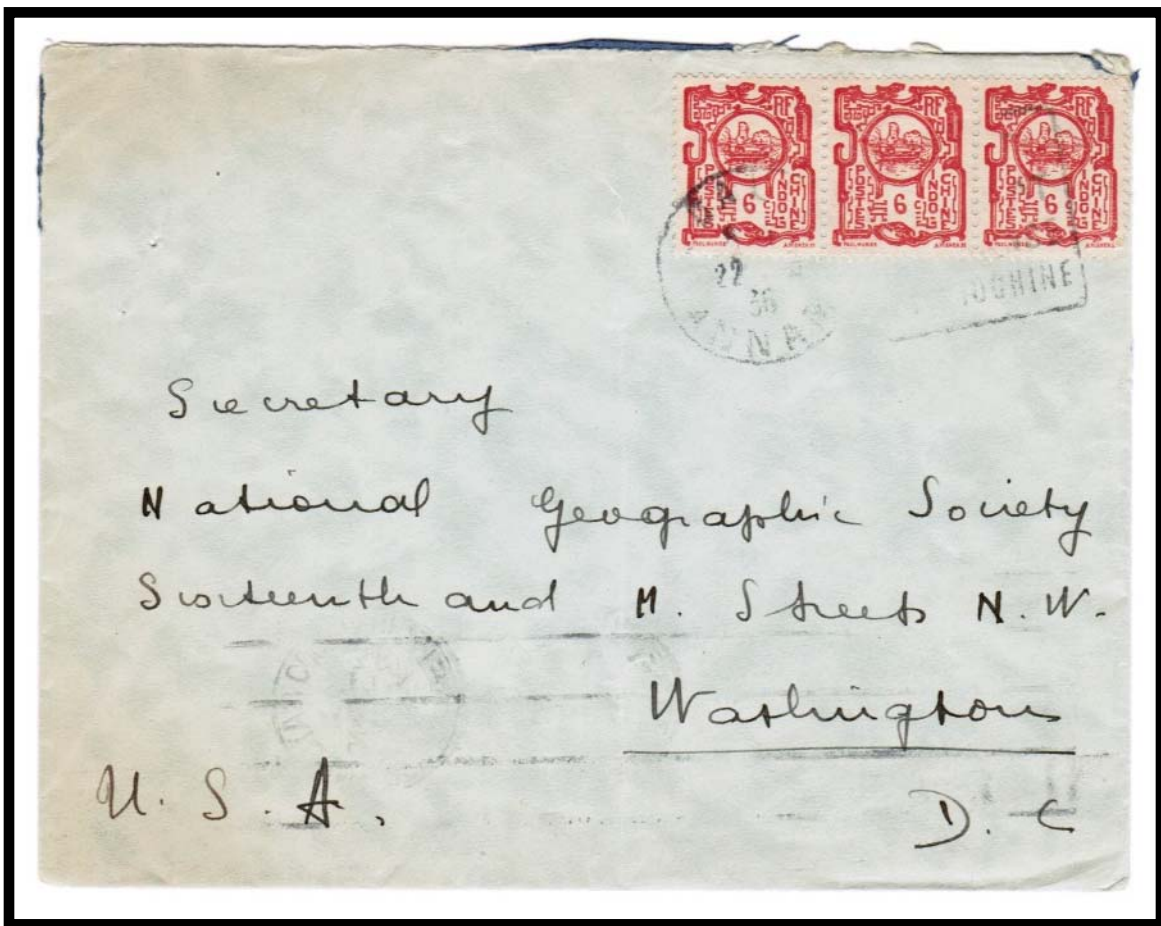 RF RF RF
POSTES INDO CHINE POSTES INDO CHINE POSTES INDO CHINE
6 c 6 c 6 c
22
36
ANNAM
Secretary
National Geographic Society
Sixteenth and M. Streets N.W.
Washington
D. C
U. S. A.